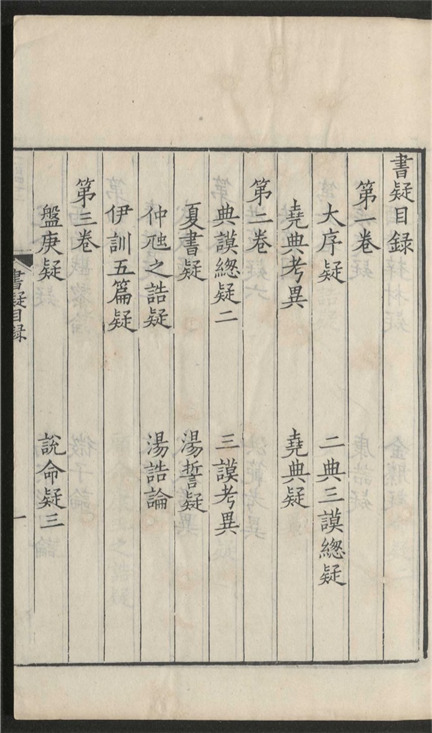 書疑目録
第一卷
大序疑 二典三謨總疑
堯典考異 堯典疑
第二卷
典謨總疑二 三謨考異
夏書疑 湯誓疑
仲虺之誥疑 湯誥論
伊訓五篇疑
第三卷
盤庚疑 說命疑三
書疑目録
一